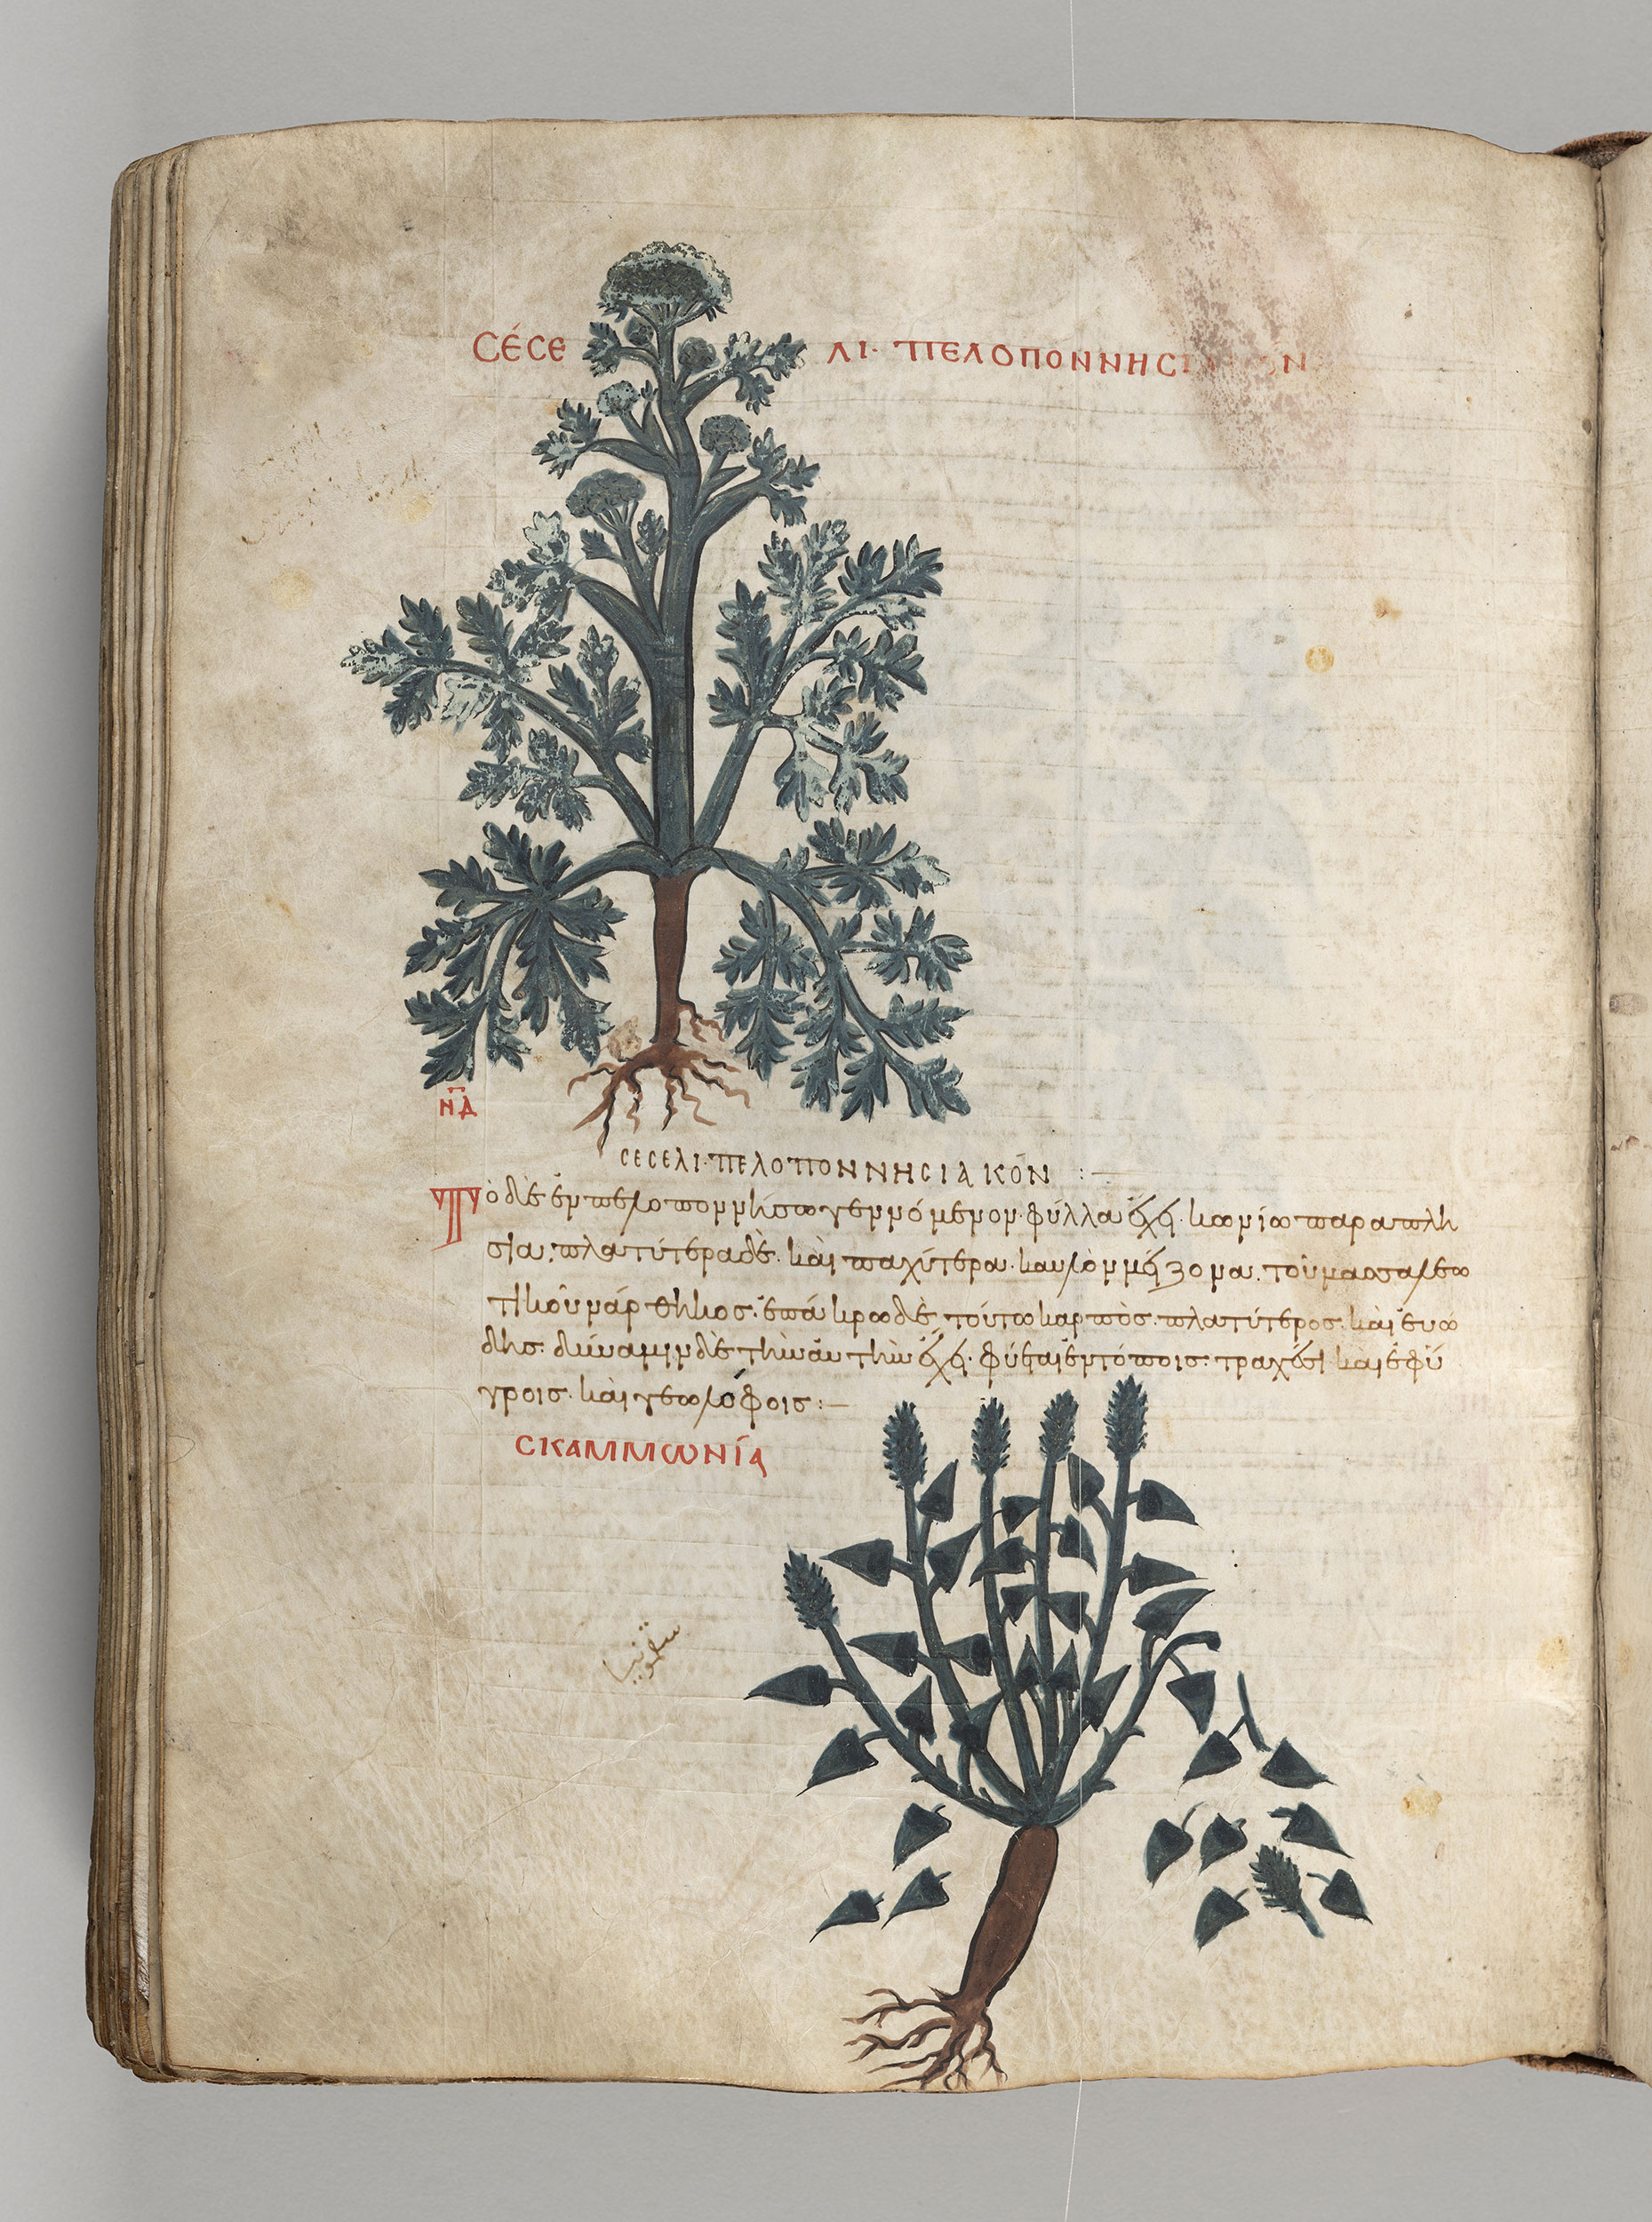 CÉCE ΛΙ· ΠΕΛΟΠΟΝΝΗCΙ
ΝΔ
CΕCΕΛΙ· ΠΕΛΟΠΟΝΝΗCΙΑΚÓΝ :—
Τὸ δὲ ἐν πελοποννήσω γεννόμενον· φύλλα ἔχει· κωνίω παραπλή
σια· πλατύτερα δὲ· καὶ παχύτερα· καυλὸν μείζονα· τοῦ μασσαλεω
τικοῦ νάρθηκος· ἐπάκρω δὲ τούτω καρπὸς· πλατύτερος· καὶ ευώ
δης· δύναμιν δὲ τὴν ἀυτὴν ἔχει· φύεται ἐν τόποις· τραχέσι καὶ ἐφύ
γροις· καὶ γεωλόφοις :—
CΚΑΜΜΩΝΊΑ
سقمونيا